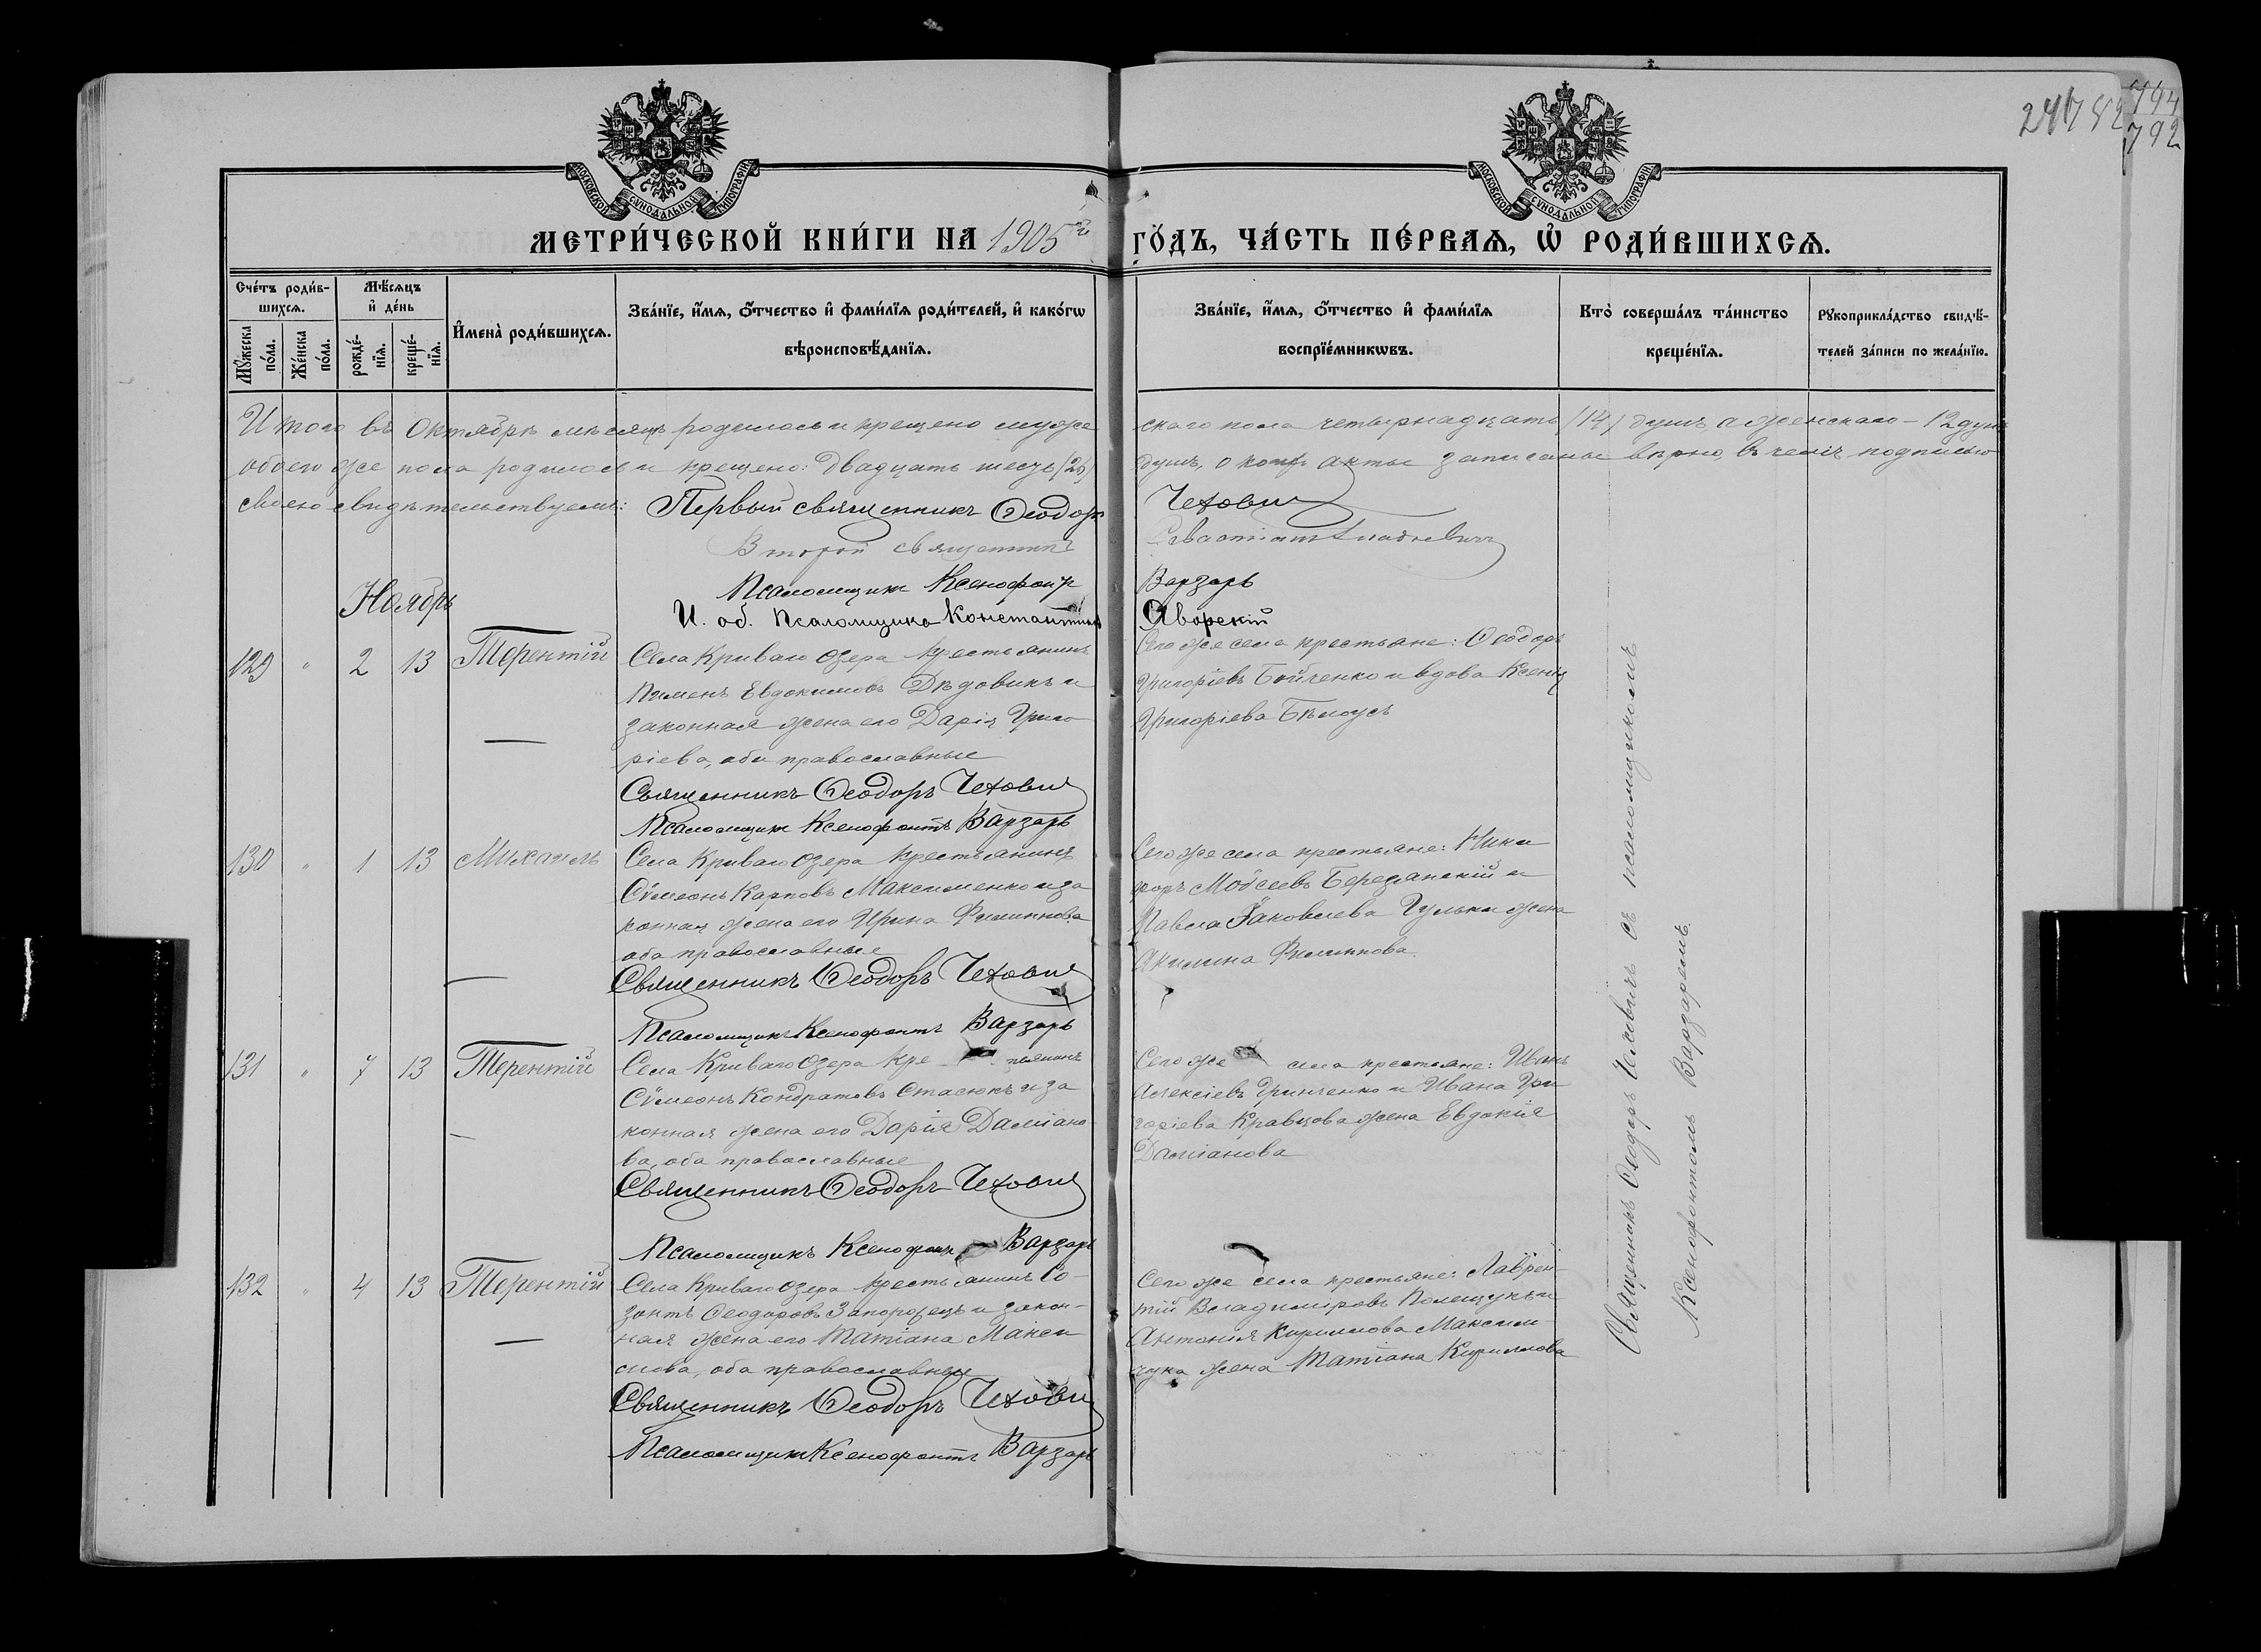 МОСКОВСКОЙ СУНОДАЛЬНОЙ ТИПОГРАФІИ
МОСКОВСКОЙ СУНОДАЛЬНОЙ ТИПОГРАФІИ
794
792
МЕТРИ́ЧЕСКОЙ КНИ́ГИ НА 1905 й ГО́ДЪ, ЧА́СТЬ ПЕ́РВАѦ, Ѡ РОДИ́ВШИХСѦ.
Сче́тъ роди́в-
шихсѧ.
Мꙋ́жеска по́ла.
Же́нска по́ла.
Мѣ́сяцъ и҆ де́нь
рожде́-нїѧ.
креще́-нїѧ.
И҆мена̀ роди́вшихсѧ.
Зва́нїе, и҆́мѧ, ѻ҆́тчество и҆ фами́лїѧ роди́телей, и҆ како́гѡ
вѣроисповѣ́данїѧ.
Зва́нїе, и҆́мѧ, ѻ҆́тчество и҆ фами́лїѧ
воспрїе́мникѡвъ.
Кто̀ соверша́лъ та́инство
креще́нїѧ.
Рꙋкоприкла́дство свидѣ́-
телей за́писи по жела́нїю.
Итого въ Октябрѣ мѣсяцѣ родилось и крещено муже
скаго пола четырнадцать (14) душъ, а женскаго - 12 душ
обоего же пола родилось и крещено: двадцать шесть (26)
душъ, о коих акты записаны вѣрно, въ чемъ подписью
своею свидѣтельствуемъ: Первый священникъ Ѳеодоръ
Чехович
Второй священникъ
Псаломщикъ Ксенофонтъ
Варзарь
И. об. псаломщика Константинъ
Яворскій
Ноябрь
129 " 2 13 Терентій
Села Криваго Озера крестьянинъ
Пименъ Евдокимовъ Дѣдовикъ и
законная жена его Дарія Григо
ріева, оба православные
Священникъ Ѳеодоръ Чехович
Псаломщикъ Ксенофонтъ Варзарь
Сего же села крестьяне: Ѳеодоръ
Григоріевъ Бойченко и вдова Ксенія
Григоріева Бѣлоусъ
130 " 1 13 Михаилъ
Села Криваго Озера крестьянинъ
Сѵмеонъ Карповъ Максименко и за
конная жена его Ирина Филиппова
оба православные
Священникъ Ѳеодоръ Чехович
Псаломщикъ Ксенофонтъ Варзарь
Сего же села крестьяне: Ники
форъ Моѵсеевъ Березанскій и
Павла Іаковлева Гулька жена
Акилина Филиппова.
131 " 7 13 Терентій
Села Криваго Озера кре стьянинъ
Сѵмеонъ Кондратовъ Стасюкъ и за
конная жена его Дарія Даміано
ва, оба православные
Священникъ Ѳеодоръ Чехович
Псаломщикъ Ксенофонтъ Варзарь
Сего же села крестьяне: Иванъ
Алексіевъ Гринченко и Ивана Гри
горіева Кравцова жена Евдокія
Даміанова
132 " 4 13 Терентій
Села Криваго Озера крестьянинъ Со-
зонтъ Ѳеодоровъ Запорожецъ и закон-
ная жена его Татіана Макси
мова, оба православные
Священникъ Ѳеодоръ Чехович
Псаломщикъ Ксенофонтъ Варзарь
Сего же села крестьяне: Лаврен
тій Владиміровъ Полещукъ и
Антонія Кириллова Максим
чука жена Татіана Кириллова
Священникъ Ѳеодоръ Чеховичъ съ псаломщикомъ
Ксенофонтомъ Варзаремъ.